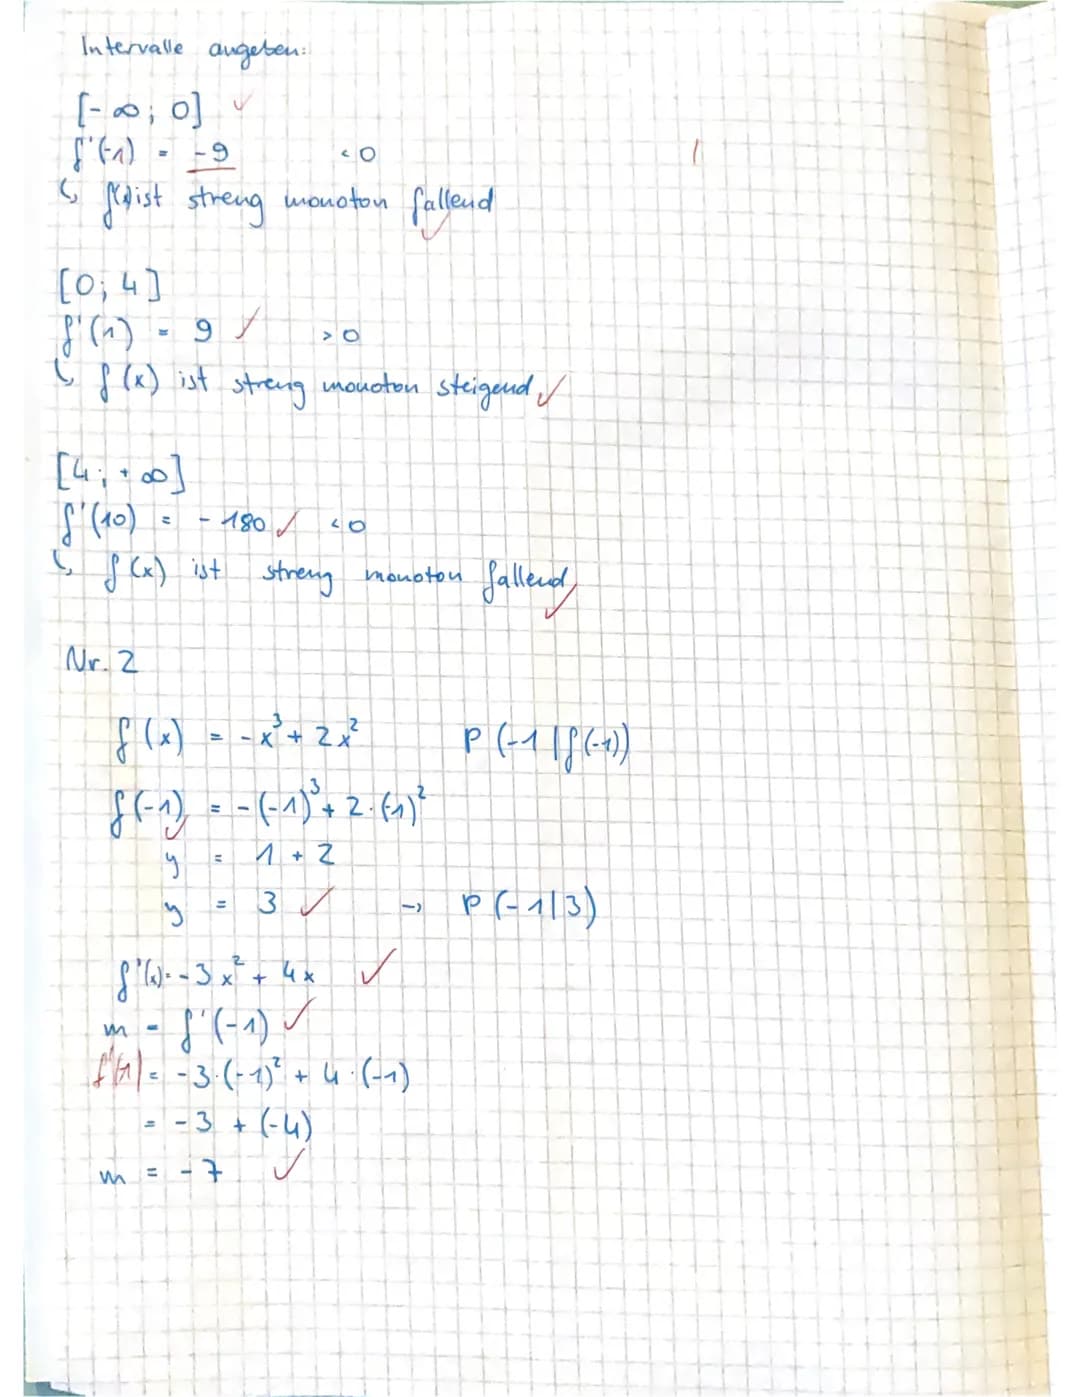 Intervalle angeben:
[-∞; 0] ✓
f'(-1) = -9 < 0
↳ f(x) ist streng monoton fallend ✓
[0; 4]
f'(1) = 9 ✓ > 0
↳ f(x) ist streng monoton steigend ✓
[4; +∞]
f'(10) = -180 ✓ < 0
↳ f(x) ist streng monoton fallend ✓
Nr. 2
f(x) = -x³ + 2x² P(-1|f(-1))
f(-1) = -(-1)³ + 2·(-1)²
y = 1 + 2
y = 3 ✓ → P(-1|3)
f'(x) = -3x² + 4x ✓
m = f'(-1) ✓
= -3·(-1)² + 4·(-1)
= -3 + (-4)
m = -7 ✓